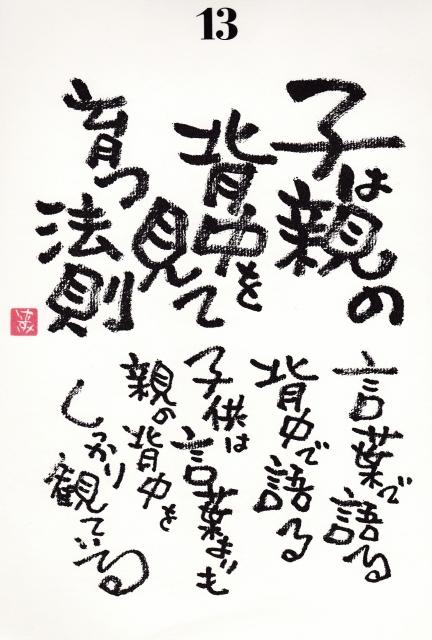 13
子は親の
背中を
見て
育つ
法則
言葉で語る
背中で語る
子供は言葉よりも
親の背中を
しっかり観ている